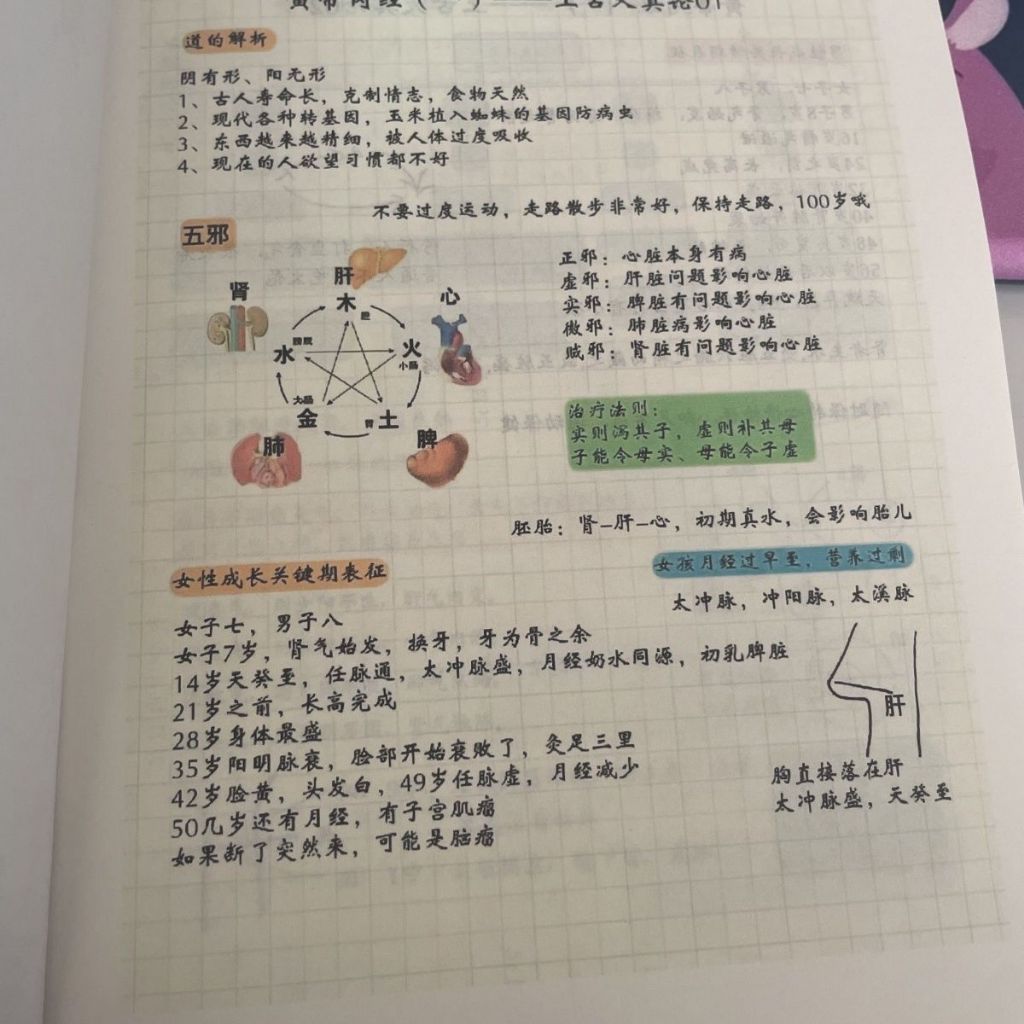 上古天真论01
道的解析
阴有形、阳无形
1、古人寿命长，克制情志，食物天然
2、现代各种转基因，玉米植入蜘蛛的基因防病虫
3、东西越来越精细，被人体过度吸收
4、现在的人欲望习惯都不好
不要过度运动，走路散步非常好，保持走路，100岁哦
五邪
肝
木
胆
肾
水
膀胱
心
火
小肠
大肠
金
肺
胃
土
脾
正邪：心脏本身有病
虚邪：肝脏问题影响心脏
实邪：脾脏有问题影响心脏
微邪：肺脏病影响心脏
贼邪：肾脏有问题影响心脏
治疗法则：
实则泻其子，虚则补其母
子能令母实、母能令子虚
胚胎：肾-肝-心，初期真水，会影响胎儿
女性成长关键期表征
女子七，男子八
女子7岁，肾气始发，换牙，牙为骨之余
14岁天癸至，任脉通，太冲脉盛，月经奶水同源，初乳脾脏
21岁之前，长高完成
28岁身体最盛
35岁阳明脉衰，脸部开始衰败了，灸足三里
42岁脸黄，头发白，49岁任脉虚，月经减少
50几岁还有月经，有子宫肌瘤
如果断了突然来，可能是脑瘤
女孩月经过早至，营养过剩
太冲脉，冲阳脉，太溪脉
肝
胸直接落在肝
太冲脉盛，天癸至